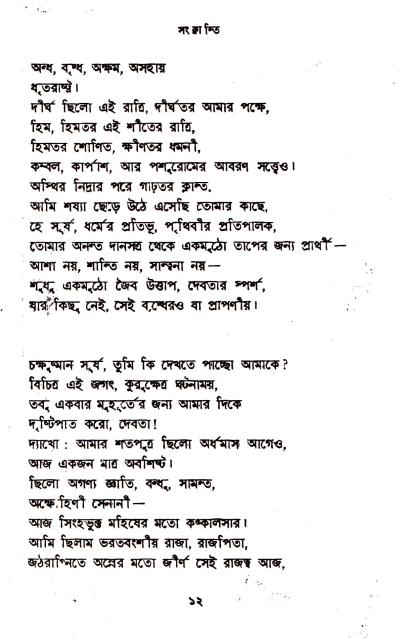 সংক্রান্তি
অন্ধ, বৃদ্ধ, অক্ষম, অসহায়
ধৃতরাষ্ট্র।
দীর্ঘ ছিলো এই রাত্রি, দীর্ঘতর আমার পক্ষে,
হিম, হিমতর এই শীতের রাত্রি,
হিমতর শোণিত, ক্ষীণতর ধমনী,
কম্বল, কার্পাশ, আর পশুরোমের আবরণ সত্ত্বেও।
অস্থির নিদ্রার পরে গাঢ়তর ক্লান্ত।
আমি শয্যা ছেড়ে উঠে এসেছি তোমার কাছে,
হে সূর্য, ধর্মের প্রতিভূ, পৃথিবীর প্রতিপালক,
তোমার অনন্ত দানসত্র থেকে একমুঠো তাপের জন্য প্রার্থী—
আশা নয়, শান্তি নয়, সান্ত্বনা নয়—
শুধু একমুঠো জৈব উত্তাপ, দেবতার স্পর্শ,
যার কিছু নেই, সেই বৃদ্ধেরও যা প্রাপণীয়।
চক্ষুষ্মান সূর্য, তুমি কি দেখতে পাচ্ছো আমাকে?
বিচিত্র এই জগৎ, কুরুক্ষেত্র ঘটনাময়,
তবু একবার মুহূর্তের জন্য আমার দিকে
দৃষ্টিপাত করো, দেবতা!
দ্যাখো : আমার শতপুত্র ছিলো অর্ধমাস আগেও,
আজ একজন মাত্র অবশিষ্ট।
ছিলো অগণ্য জ্ঞাতি, বন্ধু, সামন্ত,
অক্ষৌহিণী সেনানী—
আজ সিংহভুক্ত মহিষের মতো কঙ্কালসার।
আমি ছিলাম ভরতবংশীয় রাজা, রাজপিতা,
জঠরাগ্নিতে অন্নের মতো জীর্ণ সেই রাজত্ব আজ,
১২